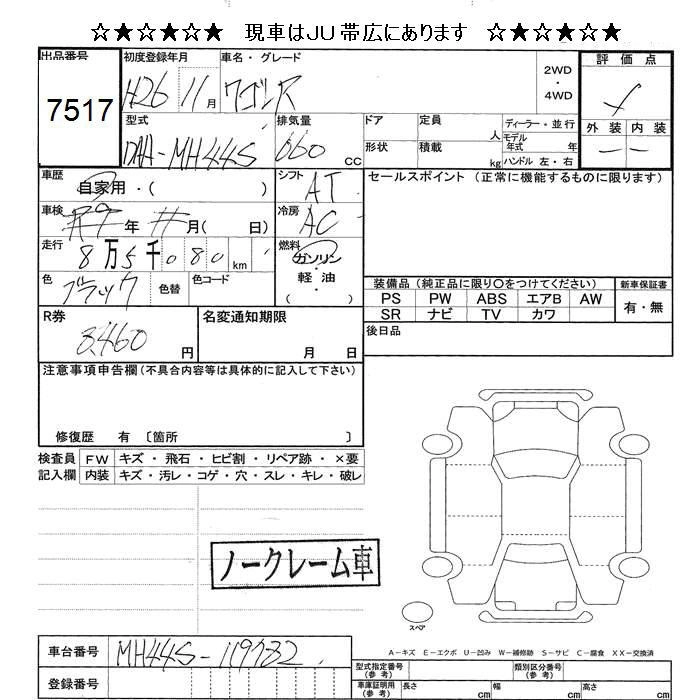 ☆★☆★☆★ 現車はJU帯広にあります ☆★☆★☆★
出品番号 初度登録年月 車名・グレード 評価点
7517 H26 11月 ワゴンR 2WD・4WD
外装 内装
型式 排気量 ドア 定員 人 ディーラー・並行
DAA-MH44S 660 CC 形状 積載 kg モデル年式 年
ハンドル 左・右
車歴 自家用・( ) シフト AT セールスポイント (正常に機能するものに限ります)
車検 年 月( 日) 冷房 AC
走行 8万5千080km 燃料 ガソリン・軽油・( )
色 ブラック 色替 色コード
装備品 (純正品に限り○をつけてください) 新車保証書
PS PW ABS エアB AW 有・無
SR ナビ TV カワ
R券 名変通知期限 後日品
円 月 日
注意事項申告欄(不具合内容等は具体的に記入して下さい)
修復歴 有 〔箇所 〕
検査員 FW キズ・飛石・ヒビ割・リペア跡・×要
記入欄 内装 キズ・汚レ・コゲ・穴・スレ・キレ・破レ
ノークレーム車
スペア
A-キズ E-エクボ U-凹み W-補修跡 S-サビ C-腐食 XX-交換済
車台番号 MH44S-119782 型式指定番号(参考) 類別区分番号(参考)
登録番号 車庫証明用(参考) 長さ cm 幅 cm 高さ cm